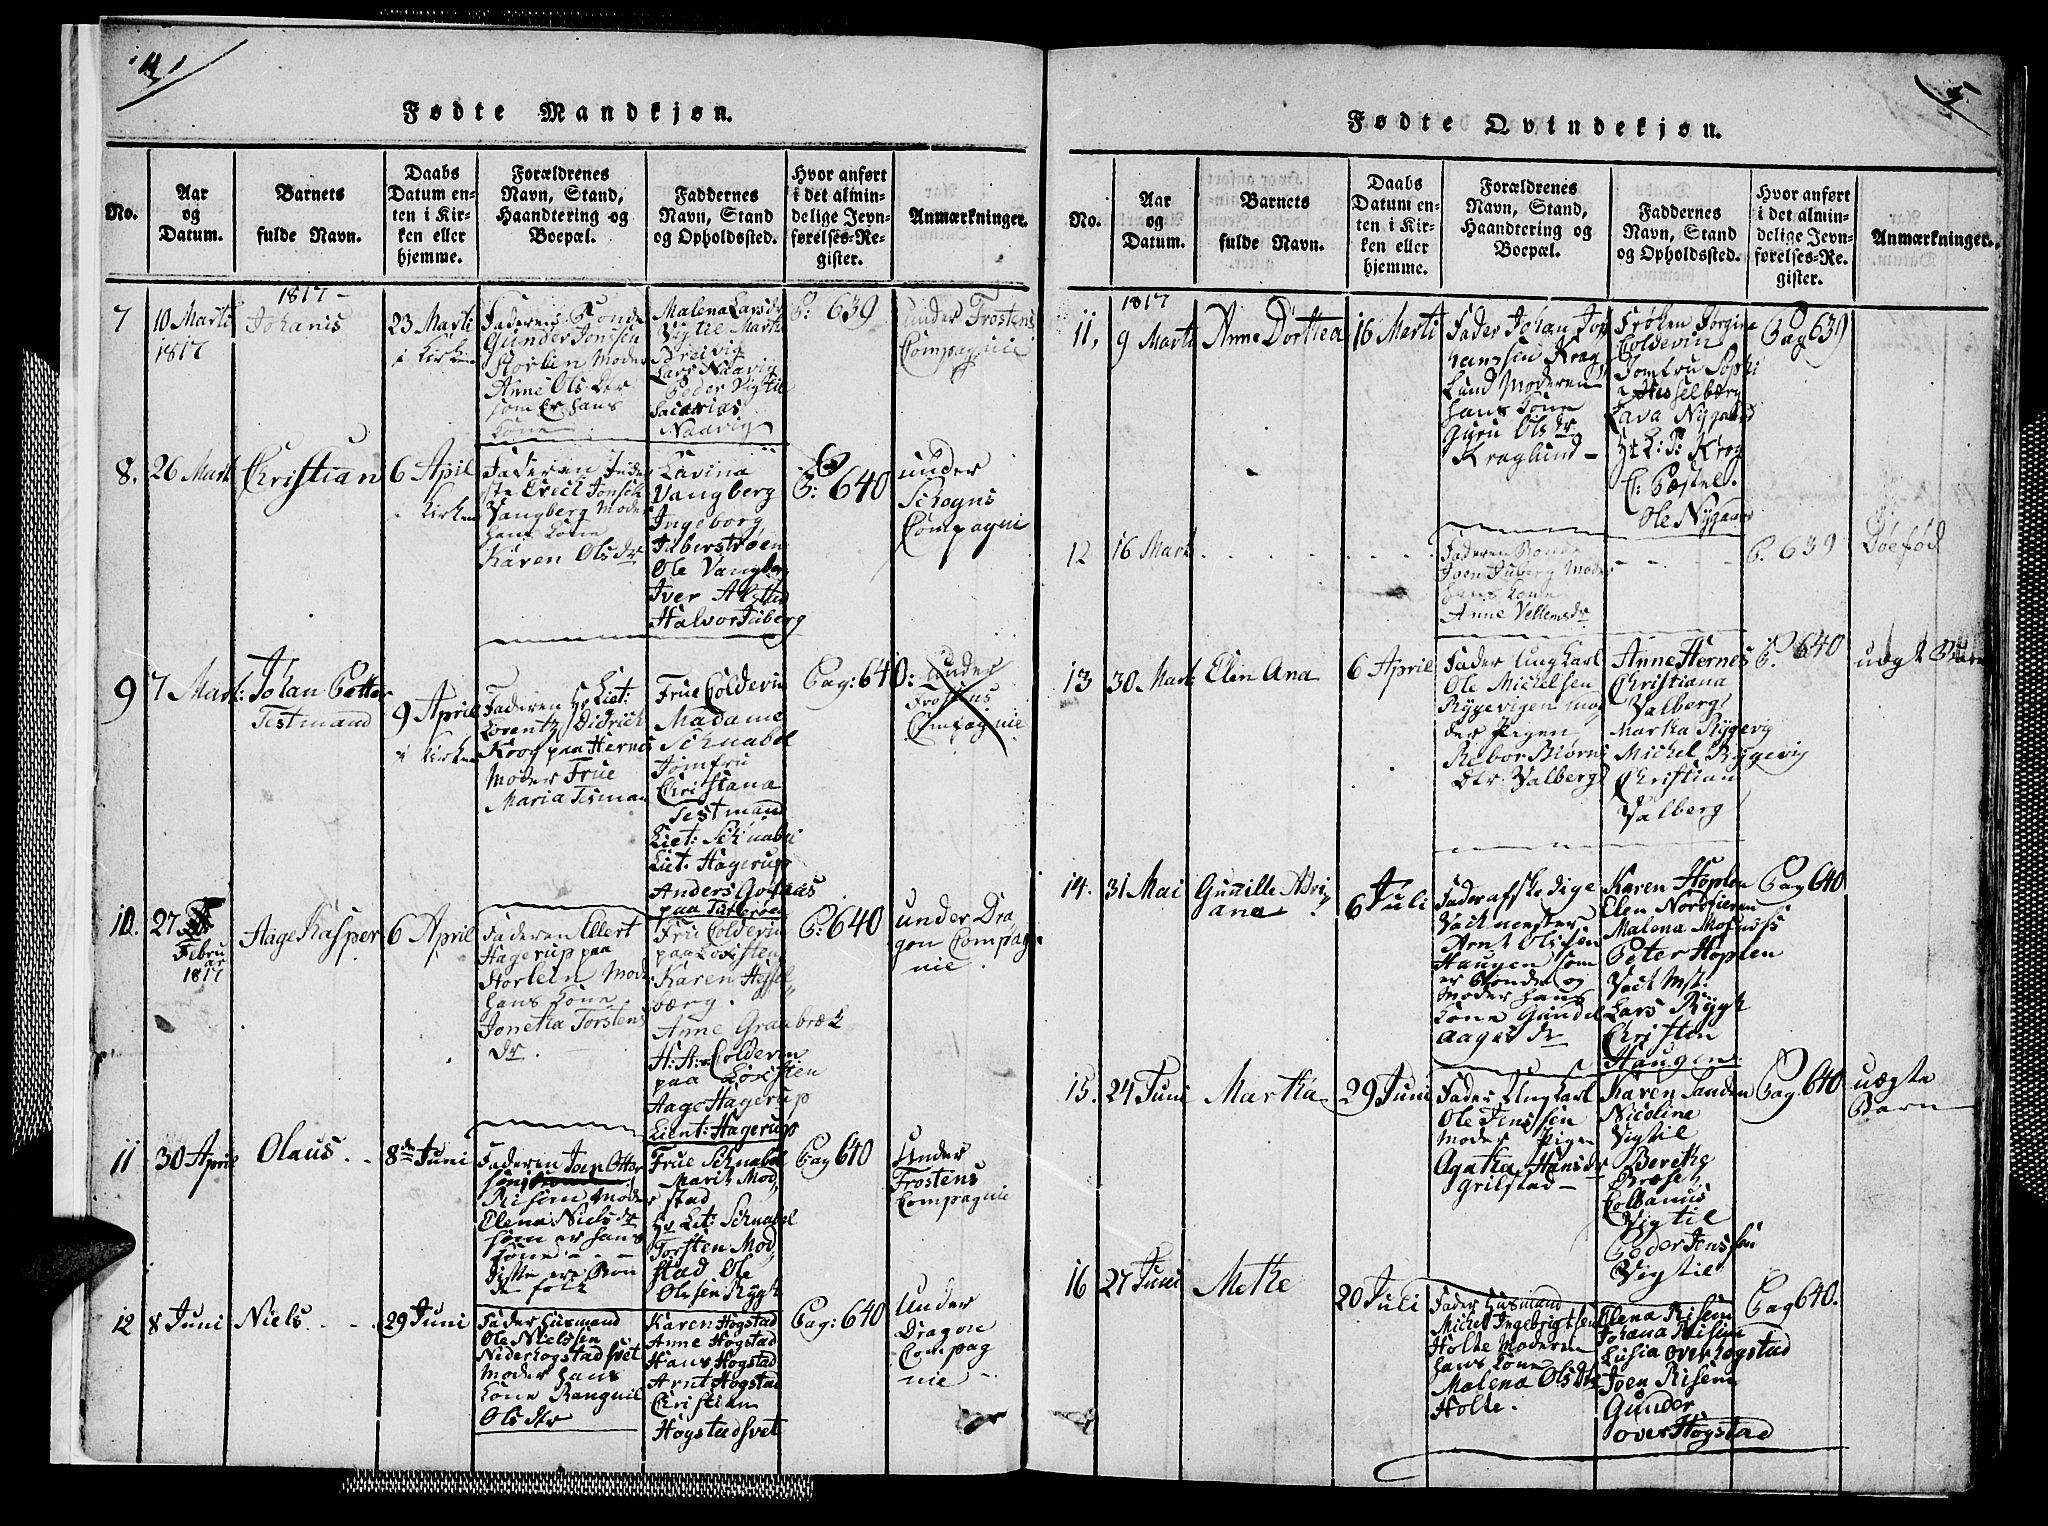 4
Fødte Mandkjøn.
No.
Aar
og
Datum.
Barnets
fulde Navn.
Daabs
Datum en-
ten i Kir-
ken eller
hjemme.
Forældrenes
Navn, Stand,
Haandtering og
Boepæl.
Faddernes
Navn, Stand
og Opholdssted.
Hvor anført
i det almin-
delige Jevn-
førelses-Re-
gister.
Anmærkninger.
7
10 Marti
1817
1817 -
Johanis
23 Marti
i Kirken
Faderens Bonde
Gunder Jonssen
Storlien Moder
Anne Ols Dtr
som Er hans
Kone
Malena Larsdr
Vigtil Martha
Breivig
Lars Naavig
Peder Vigtil
Sacarias
Naavig
P: 639
under Frostens
Compagnie
8.
26 Mart
Christian
6 April
i Kirken
Faderen Inder
ste Erick Jonsen
Vangberg Moder
hans Kone
Karen Olsdr
Lavina
Vangberg
Ingeborg
Juberstrøen
Ole Vangberg
Iver Alstad
Halvor Juberg
P: 640
under
Schogns
Compagnie
9
7 Mart:
Johan Petter
Testmand
9 April
i Kirken
Faderen Hr Liet:
Lorentz Didrich
Krog paa Hernes
Moder Frue
Maria Tesman
Frue Coldevin
Madame
Schnabel
Jomfru
Christiana
Testmand
Liet: Schnabel
Liet. Hagerup
Anders
paa
Pag: 640:
under
Frostens
Compagnie
10.
27
Febru
ar
1817
Aage Kasper
6 April
Faderen Ellert
Hagerup paa
Horlein Mod:
hans Kone
Jonetha Torstens
dr.
Frue Coldevin
paa Loxsten
Karen Hessel
værg.
Anne Graabræk
H: A: Coldevin
paa Loxsten
Aage Hagerup
Lieut: Hagerup
P: 640
under Dra
gon Compag
nie
11
30 April
Olaus
8de Juni
Faderen Joen Otter
sen
Risem Moder
Elena Niels dr
som er hans
Kone
Disse ere Bon
de folk
Frue Schnabel
Marit Mod
stad
Hr Liet: Schnabel
Torsten Mod
stad Ole
Olssen Rygh
Pag 640
Under
Frostens
Compagnie
12
8 Juni
Niels
29 Juni
Fader Husmand
Ole Nielssen
Niderhogstadsvet
Moder hans
Kone Ranguil
Ols dtr
Karen Hogstad
Anne Hogstad
Hans Hogstad
Arnt Hogstad
Christian
Hogstadsvet
Pag: 640
Under
Dragon
Compag
nie
5.
Fødte Qvindekjøn.
No.
Aar
og
Datum.
Barnets
fulde Navn.
Daabs
Datum en-
ten i Kir-
ken eller
hjemme.
Forældrenes
Navn, Stand,
Haandtering og
Boepæl.
Faddernes
Navn, Stand
og Opholdssted.
Hvor anført
i det almin-
delige Jevn-
førelses-Re-
gister.
Anmærkninger.
11,
1817
9 Marti
Anne Dorthea
16 Marti
Fader Johan Jo
hanssen Krag
Lund Moderen
hans Kone
Guru Ols dr
Kraglund
Frøken Jorgine
Coldevin
Jomfru Sophi
a Hesselberg
Lava Nygaard
Hr L: P: Krog
E: Postel.
Ole Nygaard
Pag 639
12
16 Mart
Faderen Bonde
Joen Juberg Moder
hans Kone
Anne Vellemsdr
P. 639
Døefød
13
30 Mart
Elen Ana
6 April
Fader Ungkarl
Ole Michelsen
Rygevigen Mo
der Pigen
Rebor Biorns
Dtr. Valberg
Anne Hernes
Christiana
Valberg
Martha Rygevig
Michel Rygevig
Christian
Valberg
P. 640
uægt Barn
14.
31 Mai
Gunnille Adri
ana
6 Juli
Fader afskedige
Vachmester
Arnt Olssen
Haugen som
er Bonde og
Moder hans
Kone Gundel
Aages dr
Karen Hoplen
Elen Nordfieren
Malena
Peter Hoplen
Vact Mst.
Lars Rygh
Christen
Haugen
Pag 640
15.
24 Juni
Martha
29 Juni
Fader Ungkarl
Ole Jenssen
Moder Pigen
Agatha Hansdr
Grilstad
Karen Sanden
Nicoline
Vigtil
Berethe
Colbanus
Vigtil
Peder Jenssen
Vigtil
Pag. 640
uægte
Barn
16
27 Juni
Methe
20 Juli
Fader Husmand
Michel Ingebrigtsen
Holte Moderen
hans Kone
Malena Olsdr
Holte.
Elena Risem
Johana Risem
Lusia overhogstad
Joen Risem
Gunder
overHogstad
Pag 640.